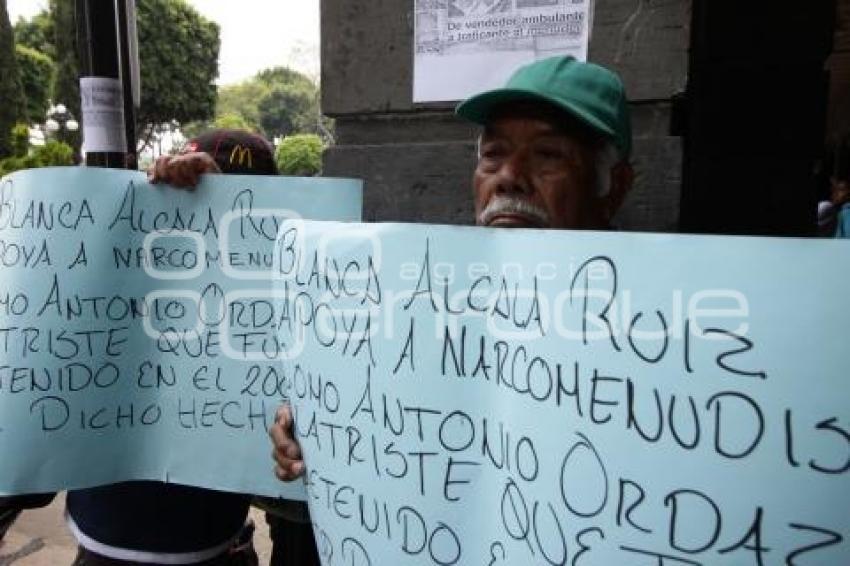 De vendedor ambulante
a traficante al menudeo
BLANCA ALCALA RU
POYA A NARCOMENU
MO ANTONIO ORDA
TRISTE QUE FU
TENIDO EN EL 200
DICHO HECH
BLANCA ALCALA RUIZ
APOYA A NARCOMENUDIS
OMO ANTONIO ORDAZ
ATRISTE QUE
DETENIDO EN
agencia
enfoque